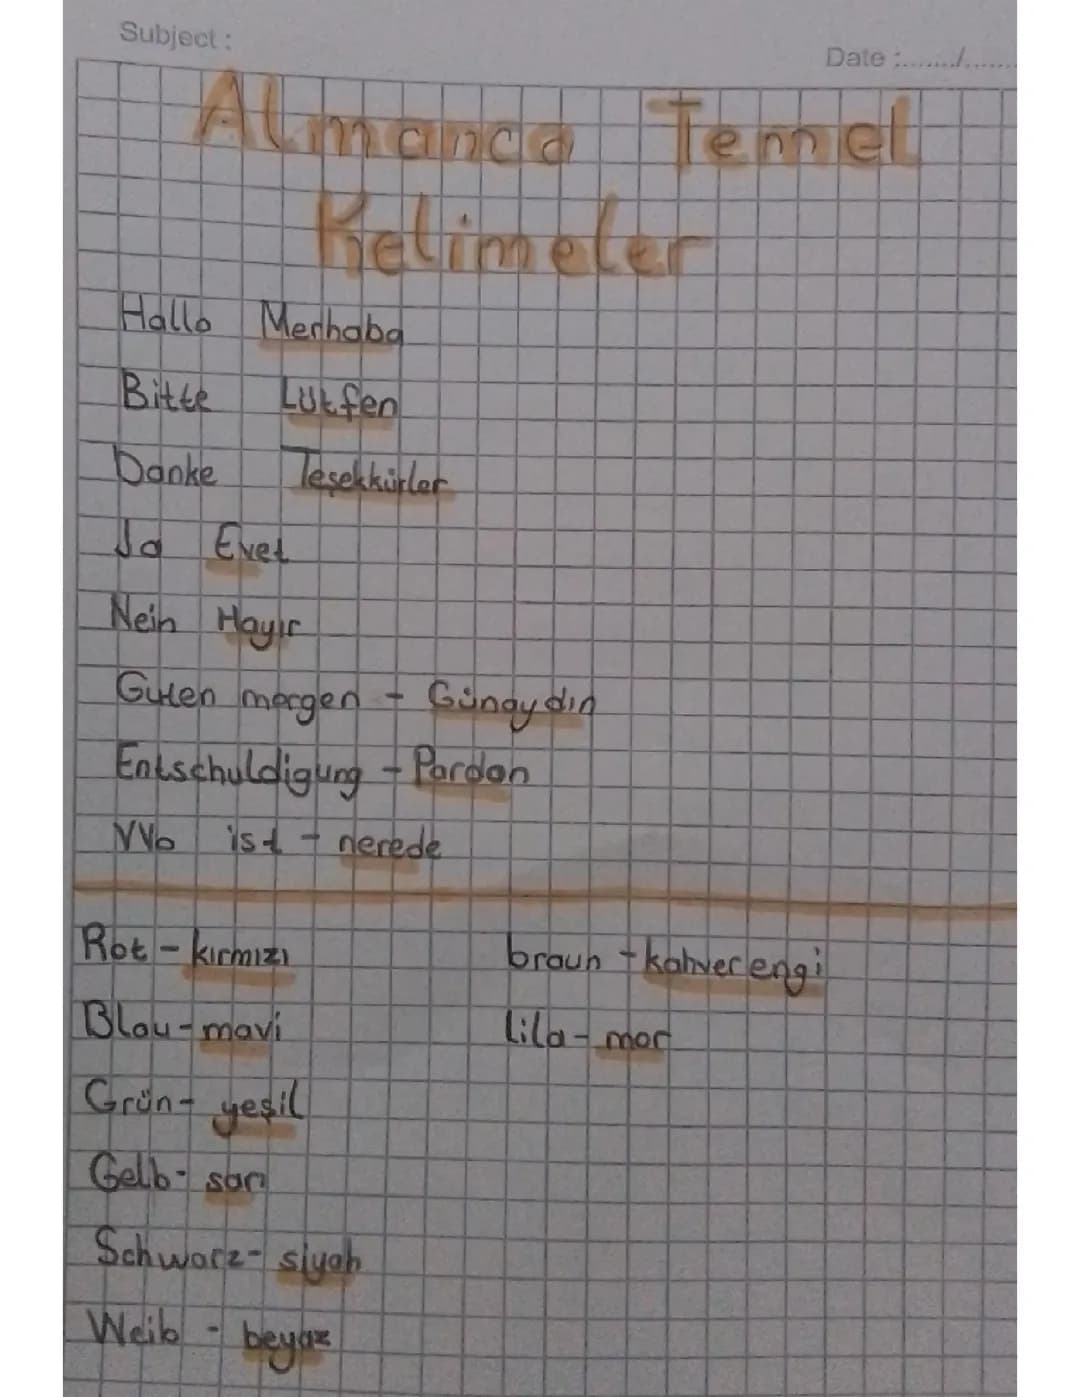 Subject :
Date :......./.......
Almanca Temel
Kelimeler
Hallo Merhaba
Bitte Lütfen
Danke Teşekkürler
Ja Evet
Nein Hayır
Guten morgen - Günaydın
Entschuldigung - Pardon
Wo ist - nerede
Rot - kırmızı
braun - kahverengi
Blau - mavi
lila - mor
Grün - yeşil
Gelb - sarı
Schwarz - siyah
Weib - beyaz